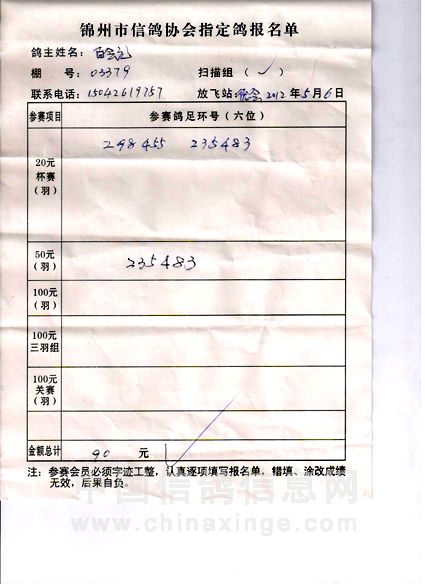 锦州市信鸽协会指定鸽报名单
鸽主姓名：白会礼
棚 号：03379 扫描组（✓）
联系电话：15042619757 放飞站：2012年5月6日
参赛项目 参赛鸽足环号（六位）
20元
杯赛
（羽）
298455 235483
50元
（羽）
235483
100元
（羽）
100元
三羽组
100元
关赛
（羽）
金额总计 90 元
注：参赛会员必须字迹工整，认真逐项填写报名单，错填、涂改成绩
无效，后果自负。
中国信鸽信息网
www.chinaxinge.com